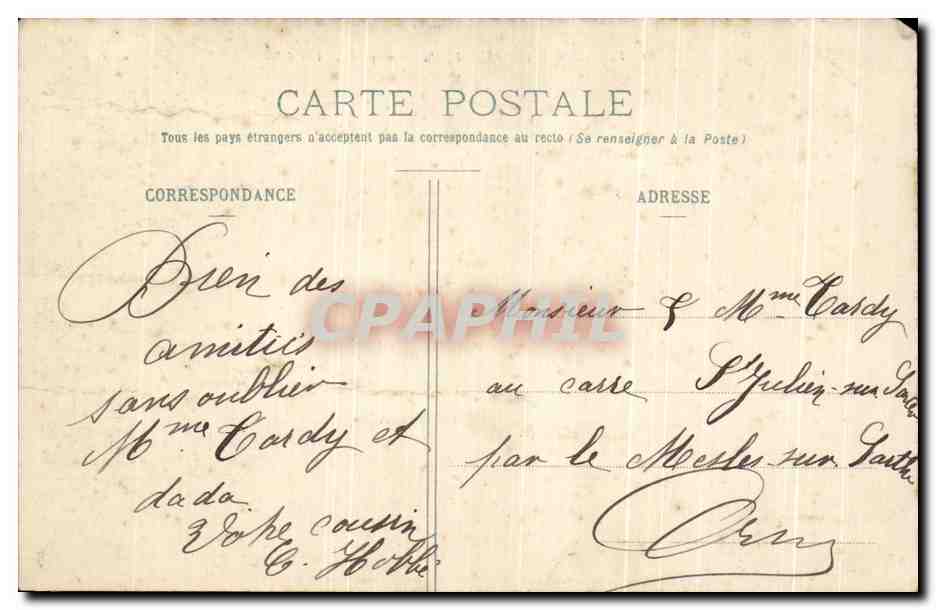 CARTE POSTALE
Tous les pays étrangers n'acceptent pas la correspondance au recto (Se renseigner à la Poste)
CORRESPONDANCE
Bien des
amitiés
sans oublier
Mme Tardy et
dada
Votre cousin
E. Hobbé
ADRESSE
Monsieur & Mme Tardy
au carre St Julien-sur Sarthe
par le Mesles-sur Sarthe
Orne
CPAPHIL